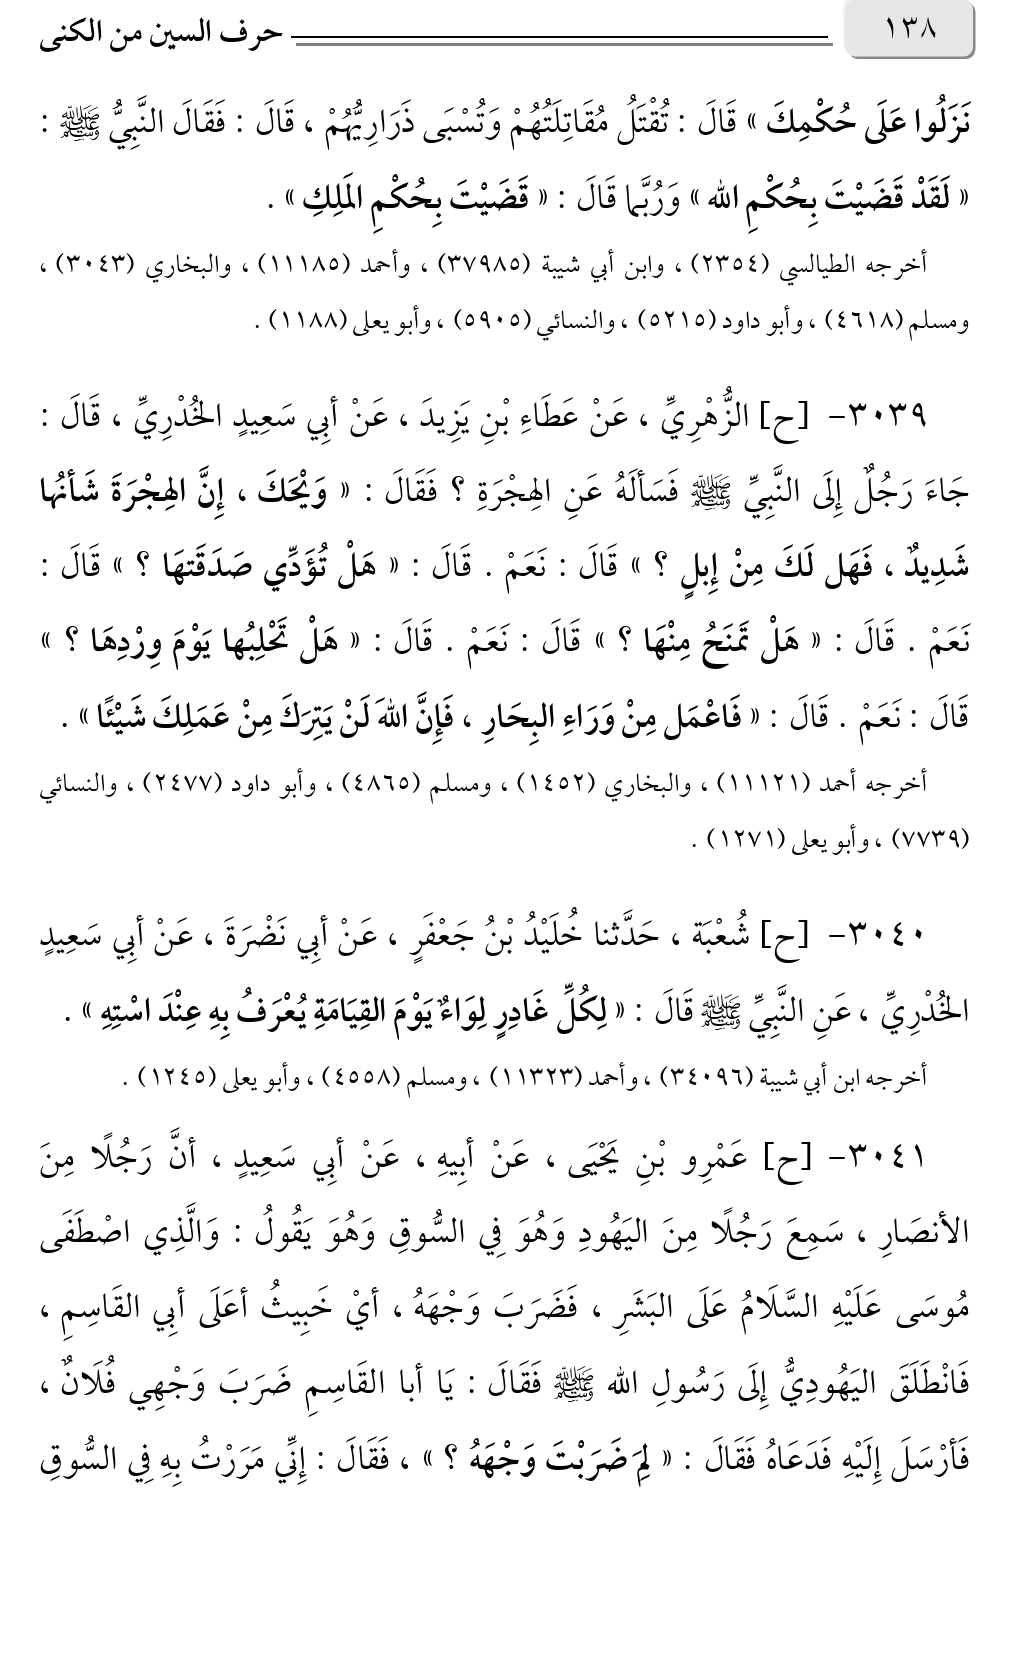 ١٣٨ حرف السين من الكنى
نَزَلُوا عَلَى حُكْمِكَ » قَالَ : تُقْتَلُ مُقَاتِلَتُهُمْ وَتُسْبَى ذَرَارِيُّهُمْ ، قَالَ : فَقَالَ النَّبِيُّ ﷺ :
« لَقَدْ قَضَيْتَ بِحُكْمِ الله » وَرُبَّما قَالَ : « قَضَيْتَ بِحُكْمِ المَلِكِ » .
أخرجه الطيالسي (٢٣٥٤) ، وابن أبي شيبة (٣٧٩٨٥) ، وأحمد (١١١٨٥) ، والبخاري (٣٠٤٣) ،
ومسلم (٤٦١٨) ، وأبو داود (٥٢١٥) ، والنسائي (٥٩٠٥) ، وأبو يعلى (١١٨٨) .
٣٠٣٩- [ح] الزُّهْرِيِّ ، عَنْ عَطَاءِ بْنِ يَزِيدَ ، عَنْ أبِي سَعِيدٍ الخُدْرِيِّ ، قَالَ :
جَاءَ رَجُلٌ إِلَى النَّبِيِّ ﷺ فَسَألَهُ عَنِ الهِجْرَةِ ؟ فَقَالَ : « وَيْحَكَ ، إِنَّ الهِجْرَةَ شَأنُها
شَدِيدٌ ، فَهَل لَكَ مِنْ إِبلٍ ؟ » قَالَ : نَعَمْ . قَالَ : « هَلْ تُؤَدِّي صَدَقَتهَا ؟ » قَالَ :
نَعَمْ . قَالَ : « هَلْ تَمنَحُ مِنْهَا ؟ » قَالَ : نَعَمْ . قَالَ : « هَلْ تَحْلِبُها يَوْمَ وِرْدِهَا ؟ »
قَالَ : نَعَمْ . قَالَ : « فَاعْمَل مِنْ وَرَاءِ البِحَارِ ، فَإِنَّ اللهَ لَنْ يَتِرَكَ مِنْ عَمَلِكَ شَيْئًا » .
أخرجه أحمد (١١١٢١) ، والبخاري (١٤٥٢) ، ومسلم (٤٨٦٥) ، وأبو داود (٢٤٧٧) ، والنسائي
(٧٧٣٩) ، وأبو يعلى (١٢٧١) .
٣٠٤٠- [ح] شُعْبَة ، حَدَّثنا خُلَيْدُ بْنُ جَعْفَرٍ ، عَنْ أبِي نَضْرَةَ ، عَنْ أبِي سَعِيدٍ
الخُدْرِيِّ ، عَنِ النَّبِيِّ ﷺ قَالَ : « لِكُلِّ غَادِرٍ لِوَاءٌ يَوْمَ القِيَامَةِ يُعْرَفُ بِهِ عِنْدَ اسْتِهِ » .
أخرجه ابن أبي شيبة (٣٤٠٩٦) ، وأحمد (١١٣٢٣) ، ومسلم (٤٥٥٨) ، وأبو يعلى (١٢٤٥) .
٣٠٤١- [ح] عَمْرِو بْنِ يَحْيَى ، عَنْ أبِيهِ ، عَنْ أبِي سَعِيدٍ ، أنَّ رَجُلًا مِنَ
الأنصَارِ ، سَمِعَ رَجُلًا مِنَ اليَهُودِ وَهُوَ فِي السُّوقِ وَهُوَ يَقُولُ : وَالَّذِي اصْطَفَى
مُوسَى عَلَيْهِ السَّلَامُ عَلَى البَشَرِ ، فَضَرَبَ وَجْهَهُ ، أيْ خَبِيثُ أعَلَى أبِي القَاسِمِ ،
فَانْطَلَقَ اليَهُودِيُّ إِلَى رَسُولِ الله ﷺ فَقَالَ : يَا أبا القَاسِمِ ضَرَبَ وَجْهِي فُلَانٌ ،
فَأرْسَلَ إِلَيْهِ فَدَعَاهُ فَقَالَ : « لِمَ ضَرَبْتَ وَجْهَهُ ؟ » ، فَقَالَ : إِنِّي مَرَرْتُ بِهِ فِي السُّوقِ